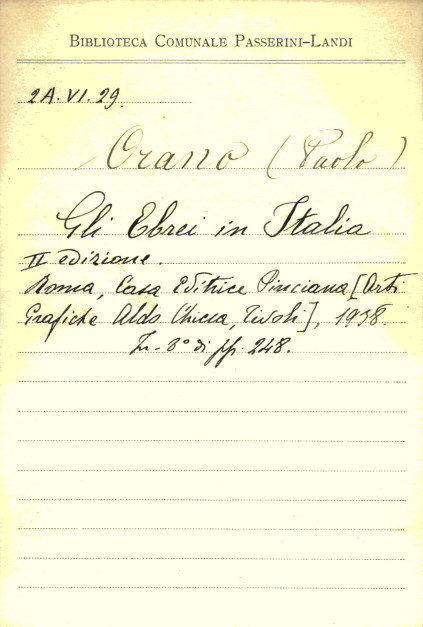 BIBLIOTECA COMUNALE PASSERINI-LANDI
2A.VI.29.
Orano (Paolo)
Gli Ebrei in Italia
II edizione.
Roma, Casa Editrice Pinciana [Arti
Grafiche Aldo Chicca, Tivoli], 1938.
In-8° di pp. 248.